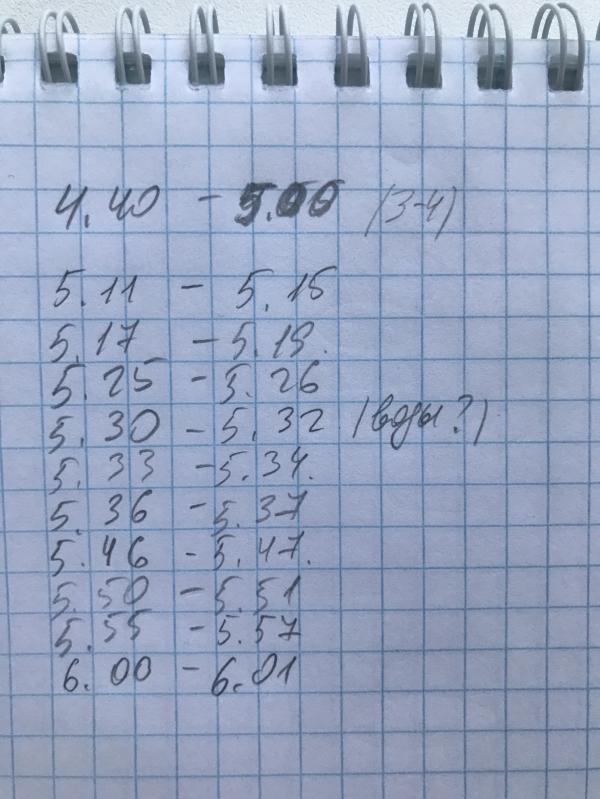 4.40 - 5.00 (3-4)
5.11 - 5.15
5.17 - 5.19.
5.25 - 5.26
5.30 - 5.32 (воды?)
5.33 - 5.34.
5.36 - 5.37
5.46 - 5.47.
5.50 - 5.51
5.55 - 5.57
6.00 - 6.01